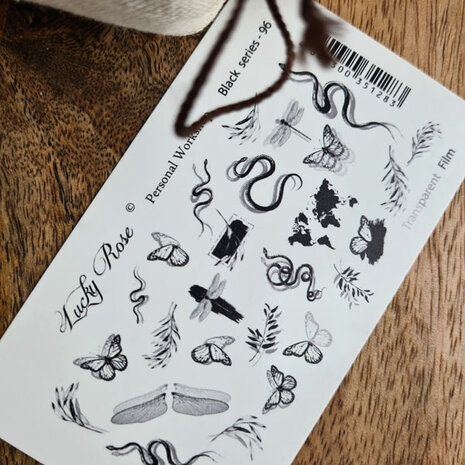 Lucky Rose ©
Personal
Black series - 96
000351283
Transparent Film